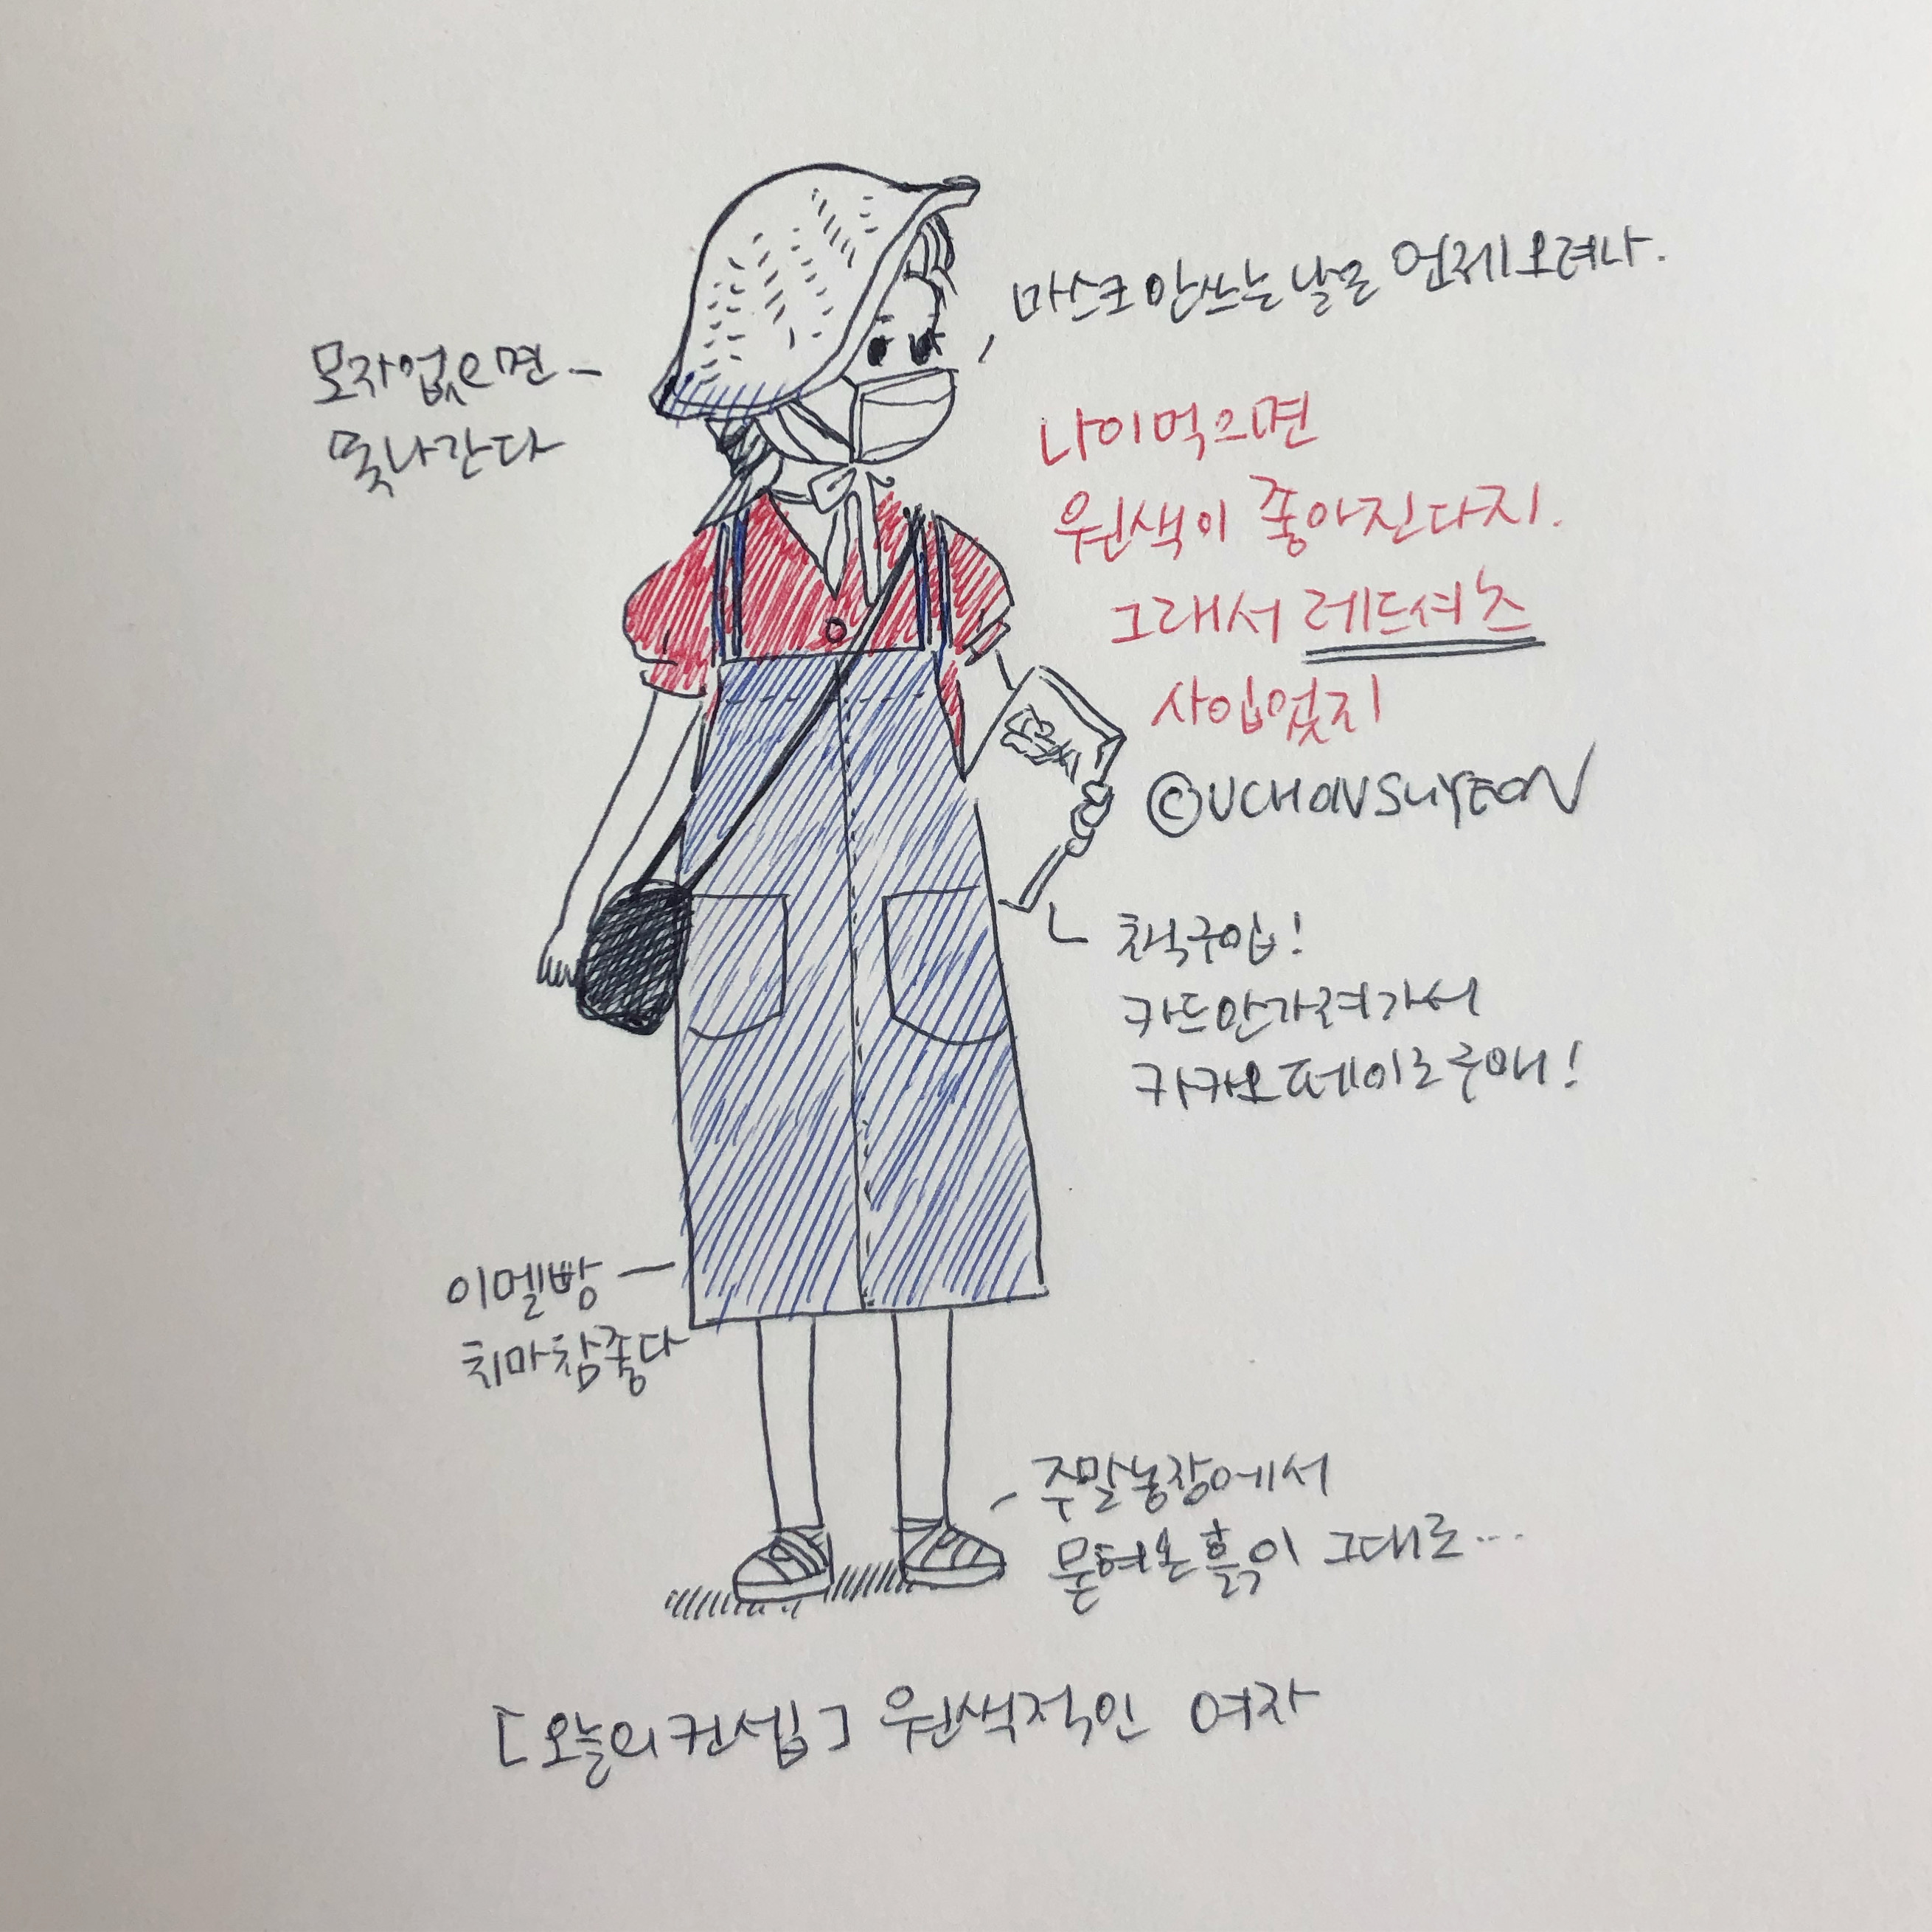 마스크 안쓰는 날은 언제 오려나.
모자 없으면
못나간다
나이먹으면
원색이 좋아진다지.
그래서 레드셔츠
사입었지
©UCHONSUYEON
책구입!
카드 안가려가서
카카오페이로 구매!
이 멜빵
치마 참 좋다
주말농장에서
묻혀온 흙이 그대로...
[오늘의 컨셉] 원색적인 여자